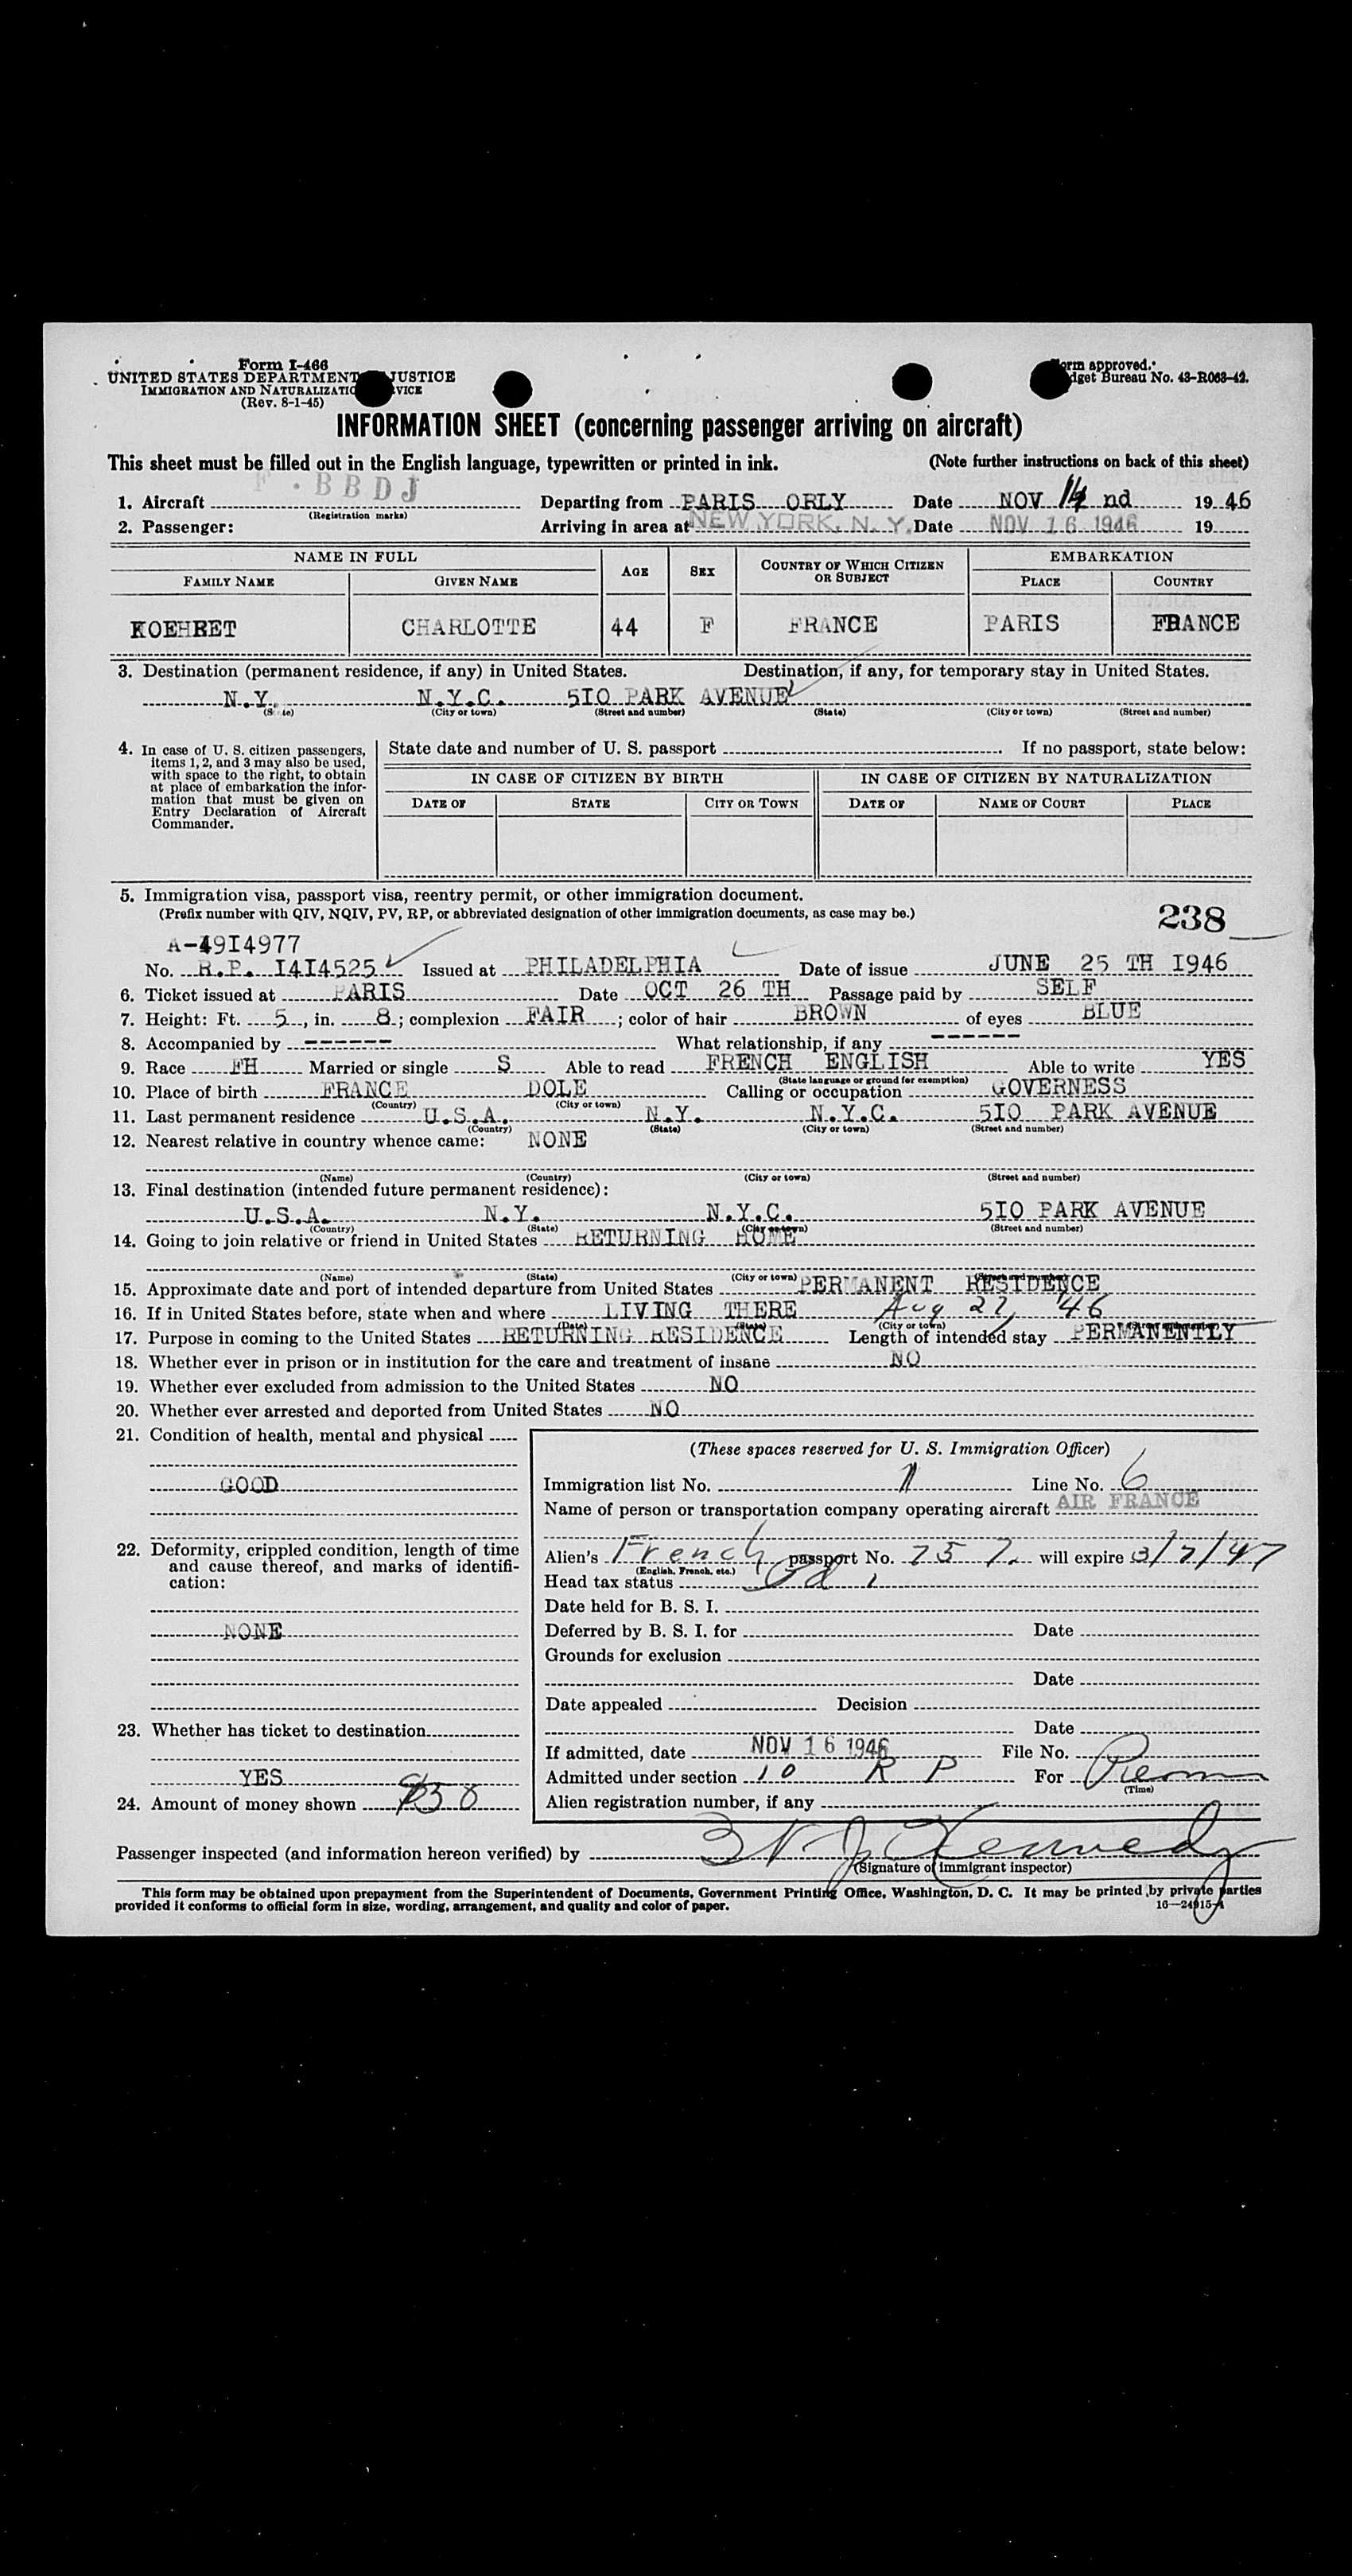 Form I-466
UNITED STATES DEPARTMENT JUSTICE
IMMIGRATION AND NATURALIZATIO VICE
(Rev. 8-1-45)
orm approved.
dget Bureau No. 43-R063-42.
INFORMATION SHEET (concerning passenger arriving on aircraft)
This sheet must be filled out in the English language, typewritten or printed in ink. (Note further instructions on back of this sheet)
1. Aircraft F-BBDJ Departing from PARIS ORLY Date NOV 14 nd 19 46
(Registration marks)
2. Passenger: Arriving in area at NEW YORK, N. Y. Date NOV 16 1946 19
NAME IN FULL AGE SEX COUNTRY OF WHICH CITIZEN OR SUBJECT EMBARKATION
FAMILY NAME GIVEN NAME PLACE COUNTRY
KOEHRET CHARLOTTE 44 F FRANCE PARIS FRANCE
3. Destination (permanent residence, if any) in United States. Destination, if any, for temporary stay in United States.
N.Y. N.Y.C. 5IO PARK AVENUE
(State) (City or town) (Street and number) (State) (City or town) (Street and number)
4. In case of U. S. citizen passengers, items 1, 2, and 3 may also be used, with space to the right, to obtain at place of embarkation the information that must be given on Entry Declaration of Aircraft Commander.
State date and number of U. S. passport If no passport, state below:
IN CASE OF CITIZEN BY BIRTH IN CASE OF CITIZEN BY NATURALIZATION
DATE OF STATE CITY OR TOWN DATE OF NAME OF COURT PLACE
5. Immigration visa, passport visa, reentry permit, or other immigration document.
(Prefix number with QIV, NQIV, PV, RP, or abbreviated designation of other immigration documents, as case may be.)
238
A-49I4977
No. R.P. I4I4525 Issued at PHILADELPHIA Date of issue JUNE 25 TH I946
6. Ticket issued at PARIS Date OCT 26 TH Passage paid by SELF
7. Height: Ft. 5, in. 8; complexion FAIR; color of hair BROWN of eyes BLUE
8. Accompanied by ------ What relationship, if any ------
9. Race FH Married or single S Able to read FRENCH ENGLISH Able to write YES
(State language or ground for exemption)
10. Place of birth FRANCE DOLE Calling or occupation GOVERNESS
(Country) (City or town)
11. Last permanent residence U.S.A. N.Y. N.Y.C. 5IO PARK AVENUE
(Country) (State) (City or town) (Street and number)
12. Nearest relative in country whence came: NONE
(Name) (Country) (City or town) (Street and number)
13. Final destination (intended future permanent residence):
U.S.A. N.Y. N.Y.C. 5IO PARK AVENUE
(Country) (State) (City or town) (Street and number)
14. Going to join relative or friend in United States RETURNING HOME
(Name) (State) (City or town) (Street and number)
15. Approximate date and port of intended departure from United States PERMANENT RESIDENCE
16. If in United States before, state when and where LIVING THERE Aug 27, '46
(Date) (State) (City or town) (Street and number)
17. Purpose in coming to the United States RETURNING RESIDENCE Length of intended stay PERMANENTLY
18. Whether ever in prison or in institution for the care and treatment of insane NO
19. Whether ever excluded from admission to the United States NO
20. Whether ever arrested and deported from United States NO
21. Condition of health, mental and physical
GOOD
22. Deformity, crippled condition, length of time and cause thereof, and marks of identification:
NONE
23. Whether has ticket to destination
YES
24. Amount of money shown $50
(These spaces reserved for U. S. Immigration Officer)
Immigration list No. 1 Line No. 6
Name of person or transportation company operating aircraft AIR FRANCE
Alien's French passport No. 757 will expire 3/7/47
(English, French, etc.)
Head tax status Pd.
Date held for B. S. I.
Deferred by B. S. I. for Date
Grounds for exclusion
Date
Date appealed Decision
Date
If admitted, date NOV 16 1946 File No.
Admitted under section 10 R P For Perm
(Time)
Alien registration number, if any
Passenger inspected (and information hereon verified) by Kennedy
(Signature of immigrant inspector)
This form may be obtained upon prepayment from the Superintendent of Documents, Government Printing Office, Washington, D. C. It may be printed by private parties
provided it conforms to official form in size, wording, arrangement, and quality and color of paper. 16—24915-1